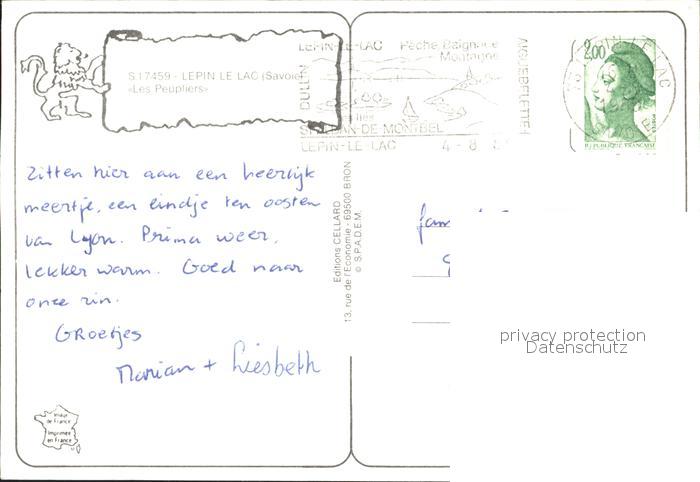 S 17459 - LEPIN LE LAC (Savoie)
«Les Peupliers»
LEPIN-LE-LAC Pêche Baignade
Montagne
DULLIN
AIGUEBELETTE
ST ALBAN-DE MONTBEL
LEPIN-LE-LAC 4-8
2,00
LEPIN LE LAC
POSTES
REPUBLIQUE FRANCAISE
Zitten hier aan een heerlijk
meertje, een eindje ten oosten
van Lyon. Prima weer,
lekker warm. Goed naar
onze zin.
Groetjes
Marian + Liesbeth
Editions CELLARD
13, rue de l'Economie - 69500 BRON
© S.P.A.D.E.M.
fam
privacy protection
Datenschutz
Image
de France
Imprimée
en France